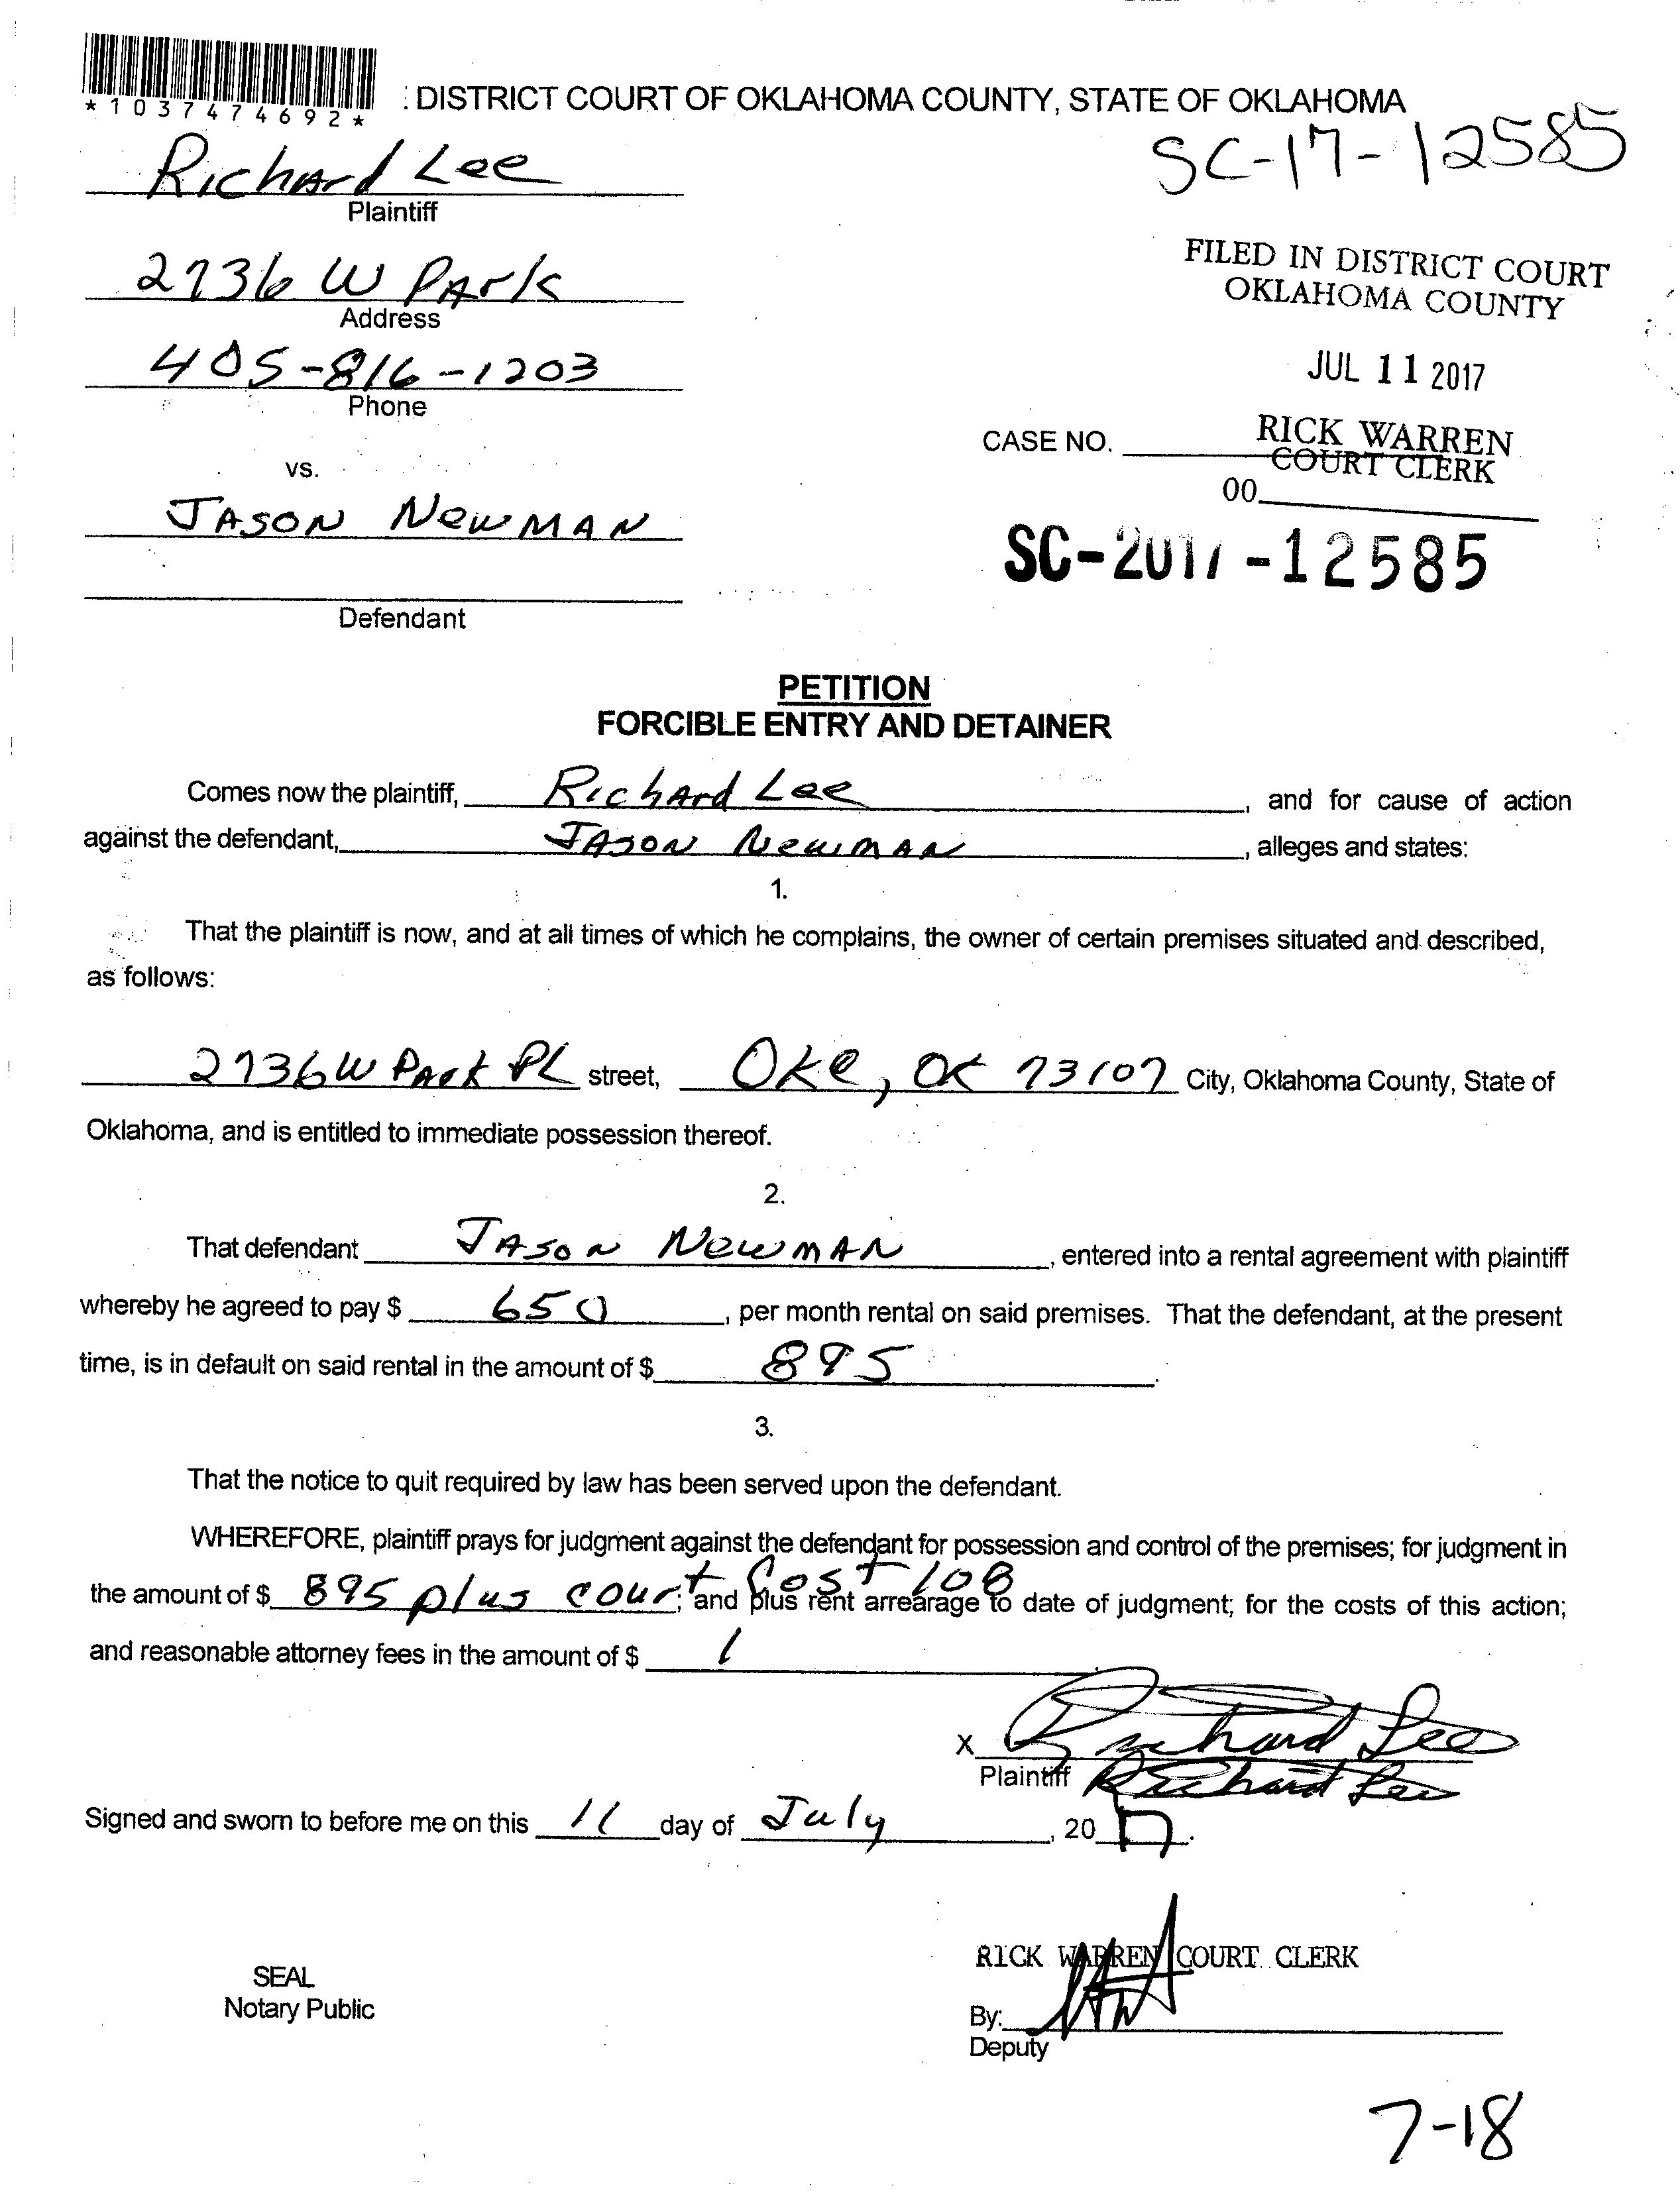 *1037474692*
: DISTRICT COURT OF OKLAHOMA COUNTY, STATE OF OKLAHOMA
SC-17-12585
Richard Lee
Plaintiff
2736 W Park
Address
FILED IN DISTRICT COURT
OKLAHOMA COUNTY
405-816-1203
Phone
JUL 11 2017
CASE NO.
RICK WARREN
COURT CLERK
00
vs.
JASON NewMAN
SC-2017-12585
Defendant
PETITION
FORCIBLE ENTRY AND DETAINER
Comes now the plaintiff, Richard Lee, and for cause of action
against the defendant, JASON NewMAN, alleges and states:
1.
That the plaintiff is now, and at all times of which he complains, the owner of certain premises situated and described,
as follows:
2736 W Park PL street, OKC, OK 73107 City, Oklahoma County, State of
Oklahoma, and is entitled to immediate possession thereof.
2.
That defendant JASON NewMAN, entered into a rental agreement with plaintiff
whereby he agreed to pay $ 650, per month rental on said premises. That the defendant, at the present
time, is in default on said rental in the amount of $ 895.
3.
That the notice to quit required by law has been served upon the defendant.
WHEREFORE, plaintiff prays for judgment against the defendant for possession and control of the premises; for judgment in
the amount of $ 895 plus court Cost 108; and plus rent arrearage to date of judgment; for the costs of this action;
and reasonable attorney fees in the amount of $
X Richard Lee
Plaintiff Richard Lee
Signed and sworn to before me on this 11 day of July, 2017.
RICK WARREN COURT CLERK
SEAL
Notary Public
By:
Deputy
7-18